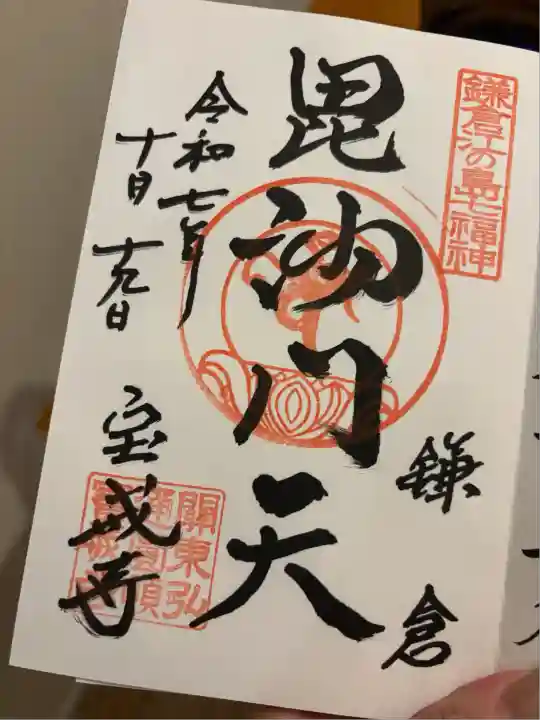 鎌倉江の島七福神
鎌倉
毘沙門天
令和七年
十月十九日
宝戒寺
關東弘
通圓頓